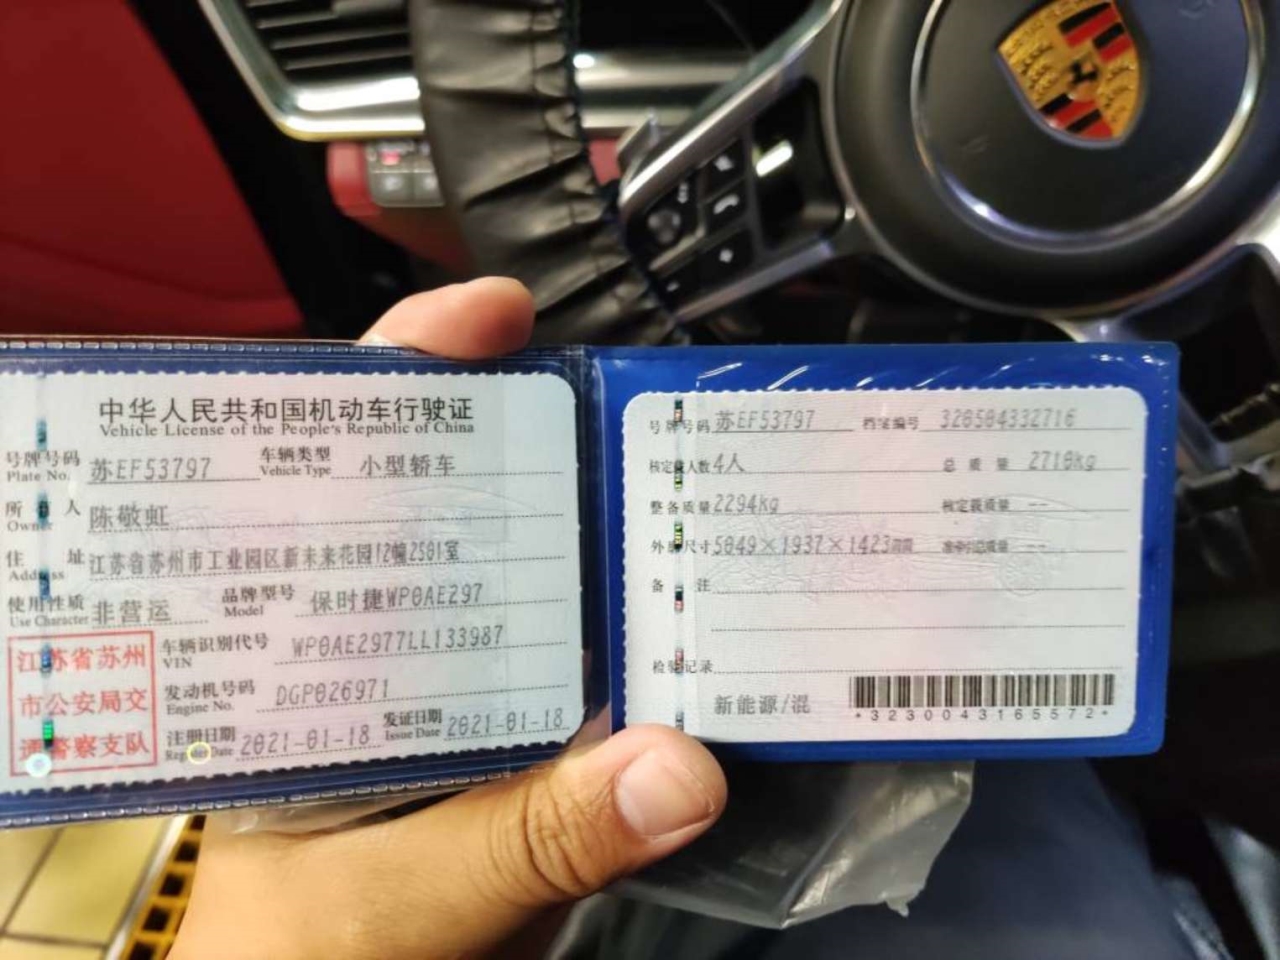 中华人民共和国机动车行驶证
Vehicle License of the People's Republic of China
号牌号码 苏EF53797 车辆类型 小型轿车
Plate No. Vehicle Type
所有人 陈敬虹
Owner
住址 江苏省苏州市工业园区新未来花园12幢2501室
Address
使用性质 非营运 品牌型号 保时捷WP0AE297
Use Character Model
江苏省苏州
市公安局交
通警察支队
车辆识别代号 WP0AE2977LL133987
VIN
发动机号码 DGP026971
Engine No.
注册日期 2021-01-18 发证日期 2021-01-18
Register Date Issue Date
号牌号码 苏EF53797 档案编号 320504332716
核定载人数 4人 总质量 2710kg
整备质量 2294kg 核定载质量 --
外廓尺寸 5049×1937×1423mm 准牵引总质量 --
备注
检验记录
新能源/混
*3230043165572*